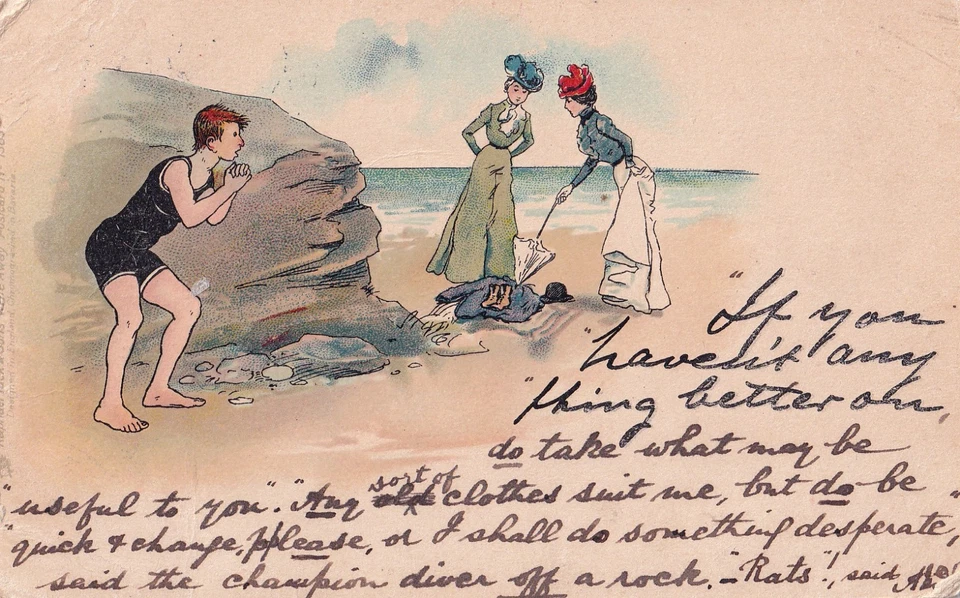 "If you
"haven't any
"thing better on,
do take what may be
"useful to you". "Any sort of clothes suit me, but do be
"quick & change, please, or I shall do something desperate,"
said the champion diver off a rock. - "Rats"!, said